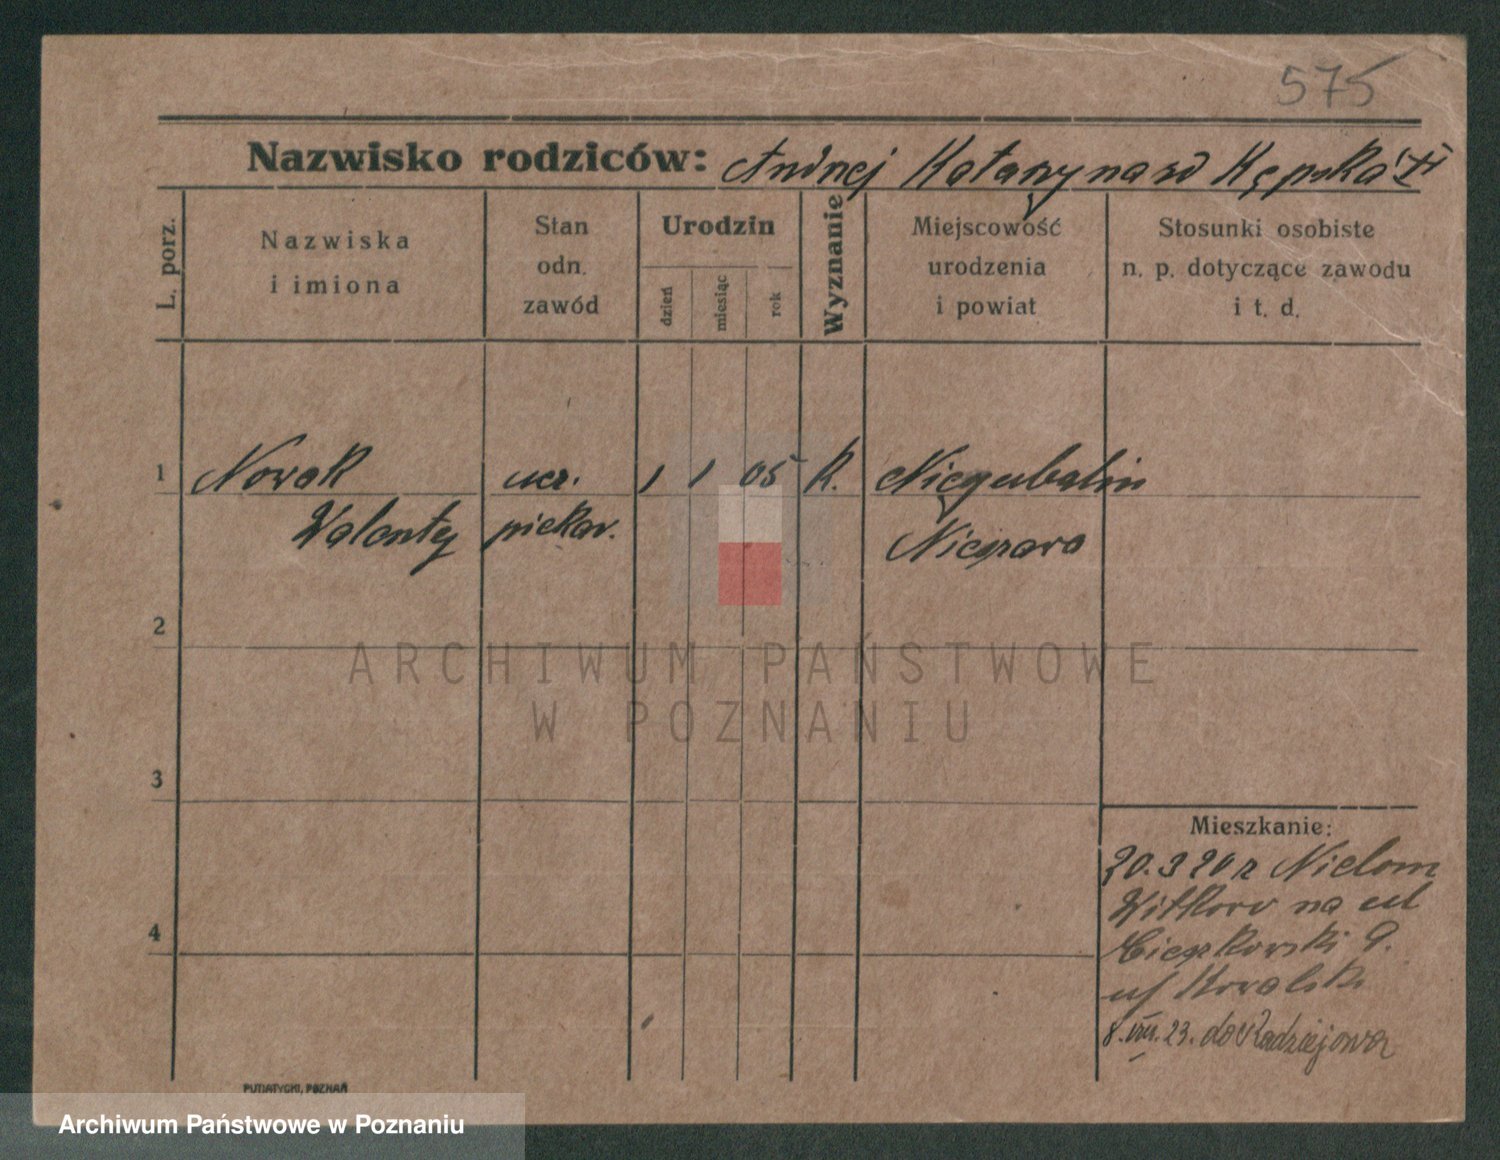 575
Nazwisko rodziców: Andrzej Katarzyna
L. porz.
Nazwiska
i imiona
Stan
odn.
zawód
Urodzin
dzień
miesiąc
rok
Wyznanie
Miejscowość
urodzenia
i powiat
Stosunki osobiste
n. p. dotyczące zawodu
i t. d.
1 Nowak ucz. 1 1 05 K.
Walenty piekar.
2
3
4
ARCHIWUM PAŃSTWOWE
W POZNANIU
Mieszkanie:
na ul
9.
8. VIII. 23. do Radziejowa
PUTIATYCKI, POZNAŃ
Archiwum Państwowe w Poznaniu